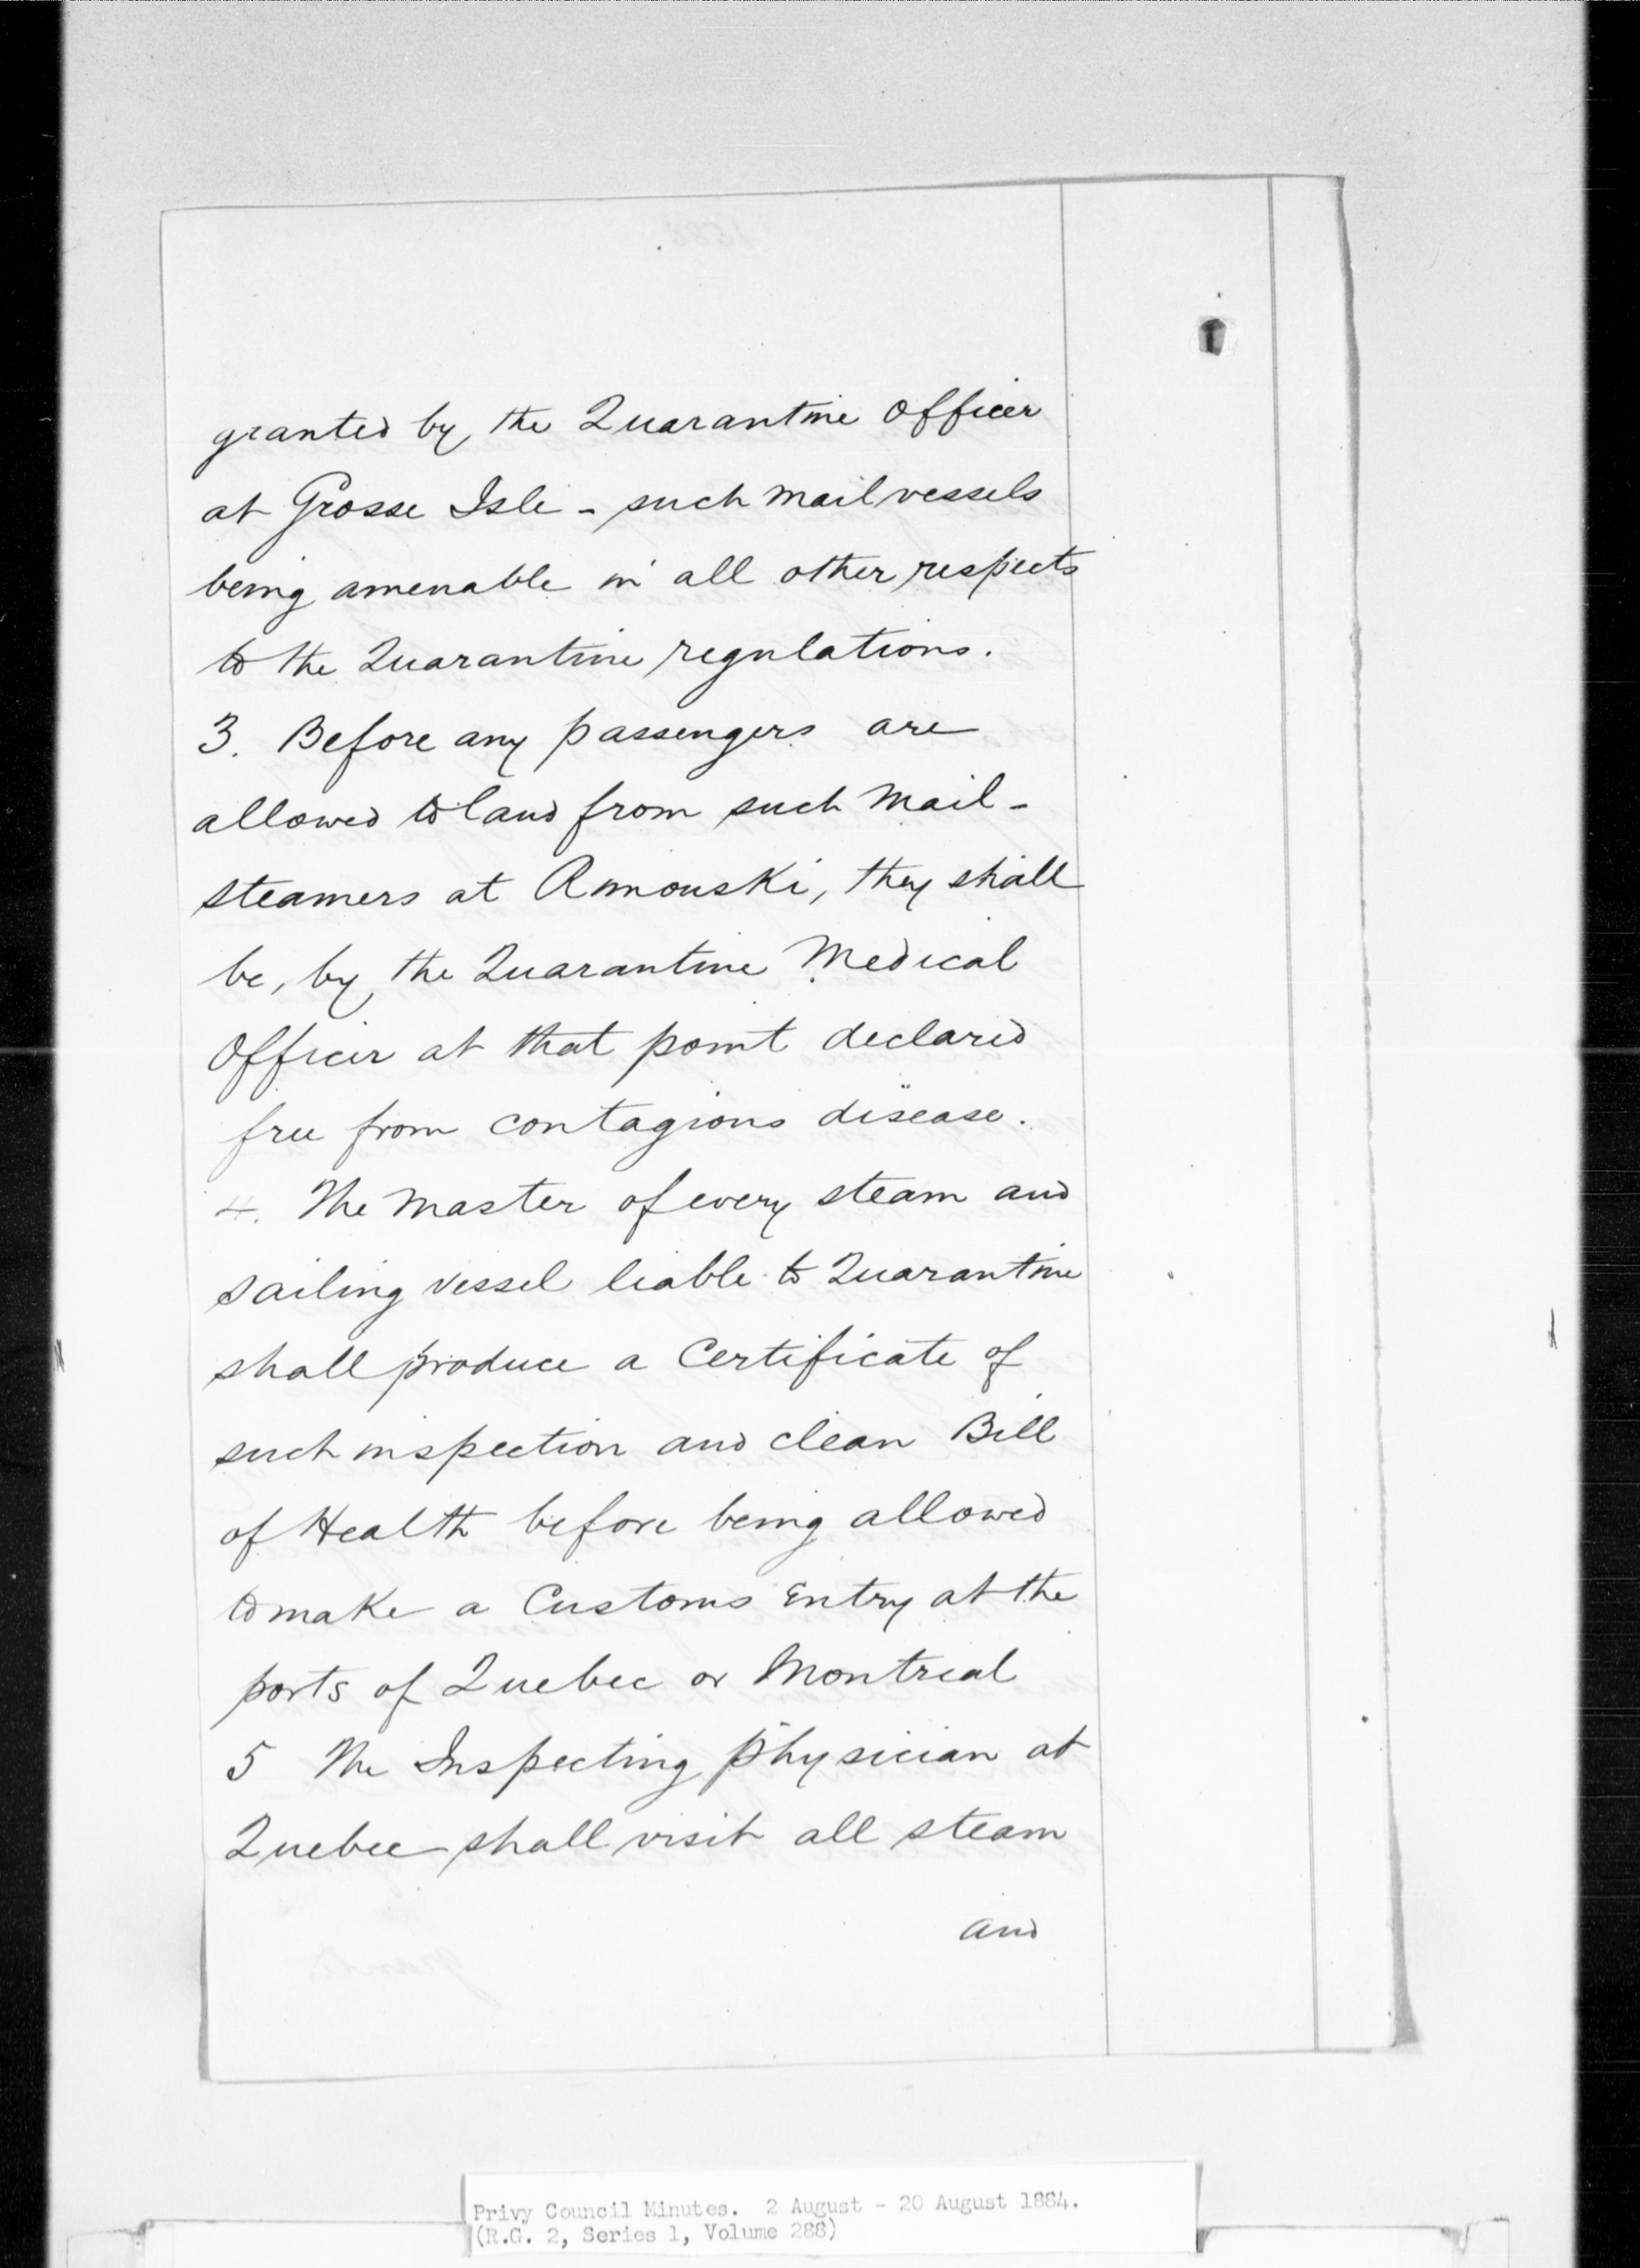 granted by the Quarantine Officer
at Grosse Isle - such mail vessels
being amenable in all other respects
to the Quarantine regulations.
3. Before any passengers are
allowed to land from such Mail-
steamers at Rimouski, they shall
be, by the Quarantine Medical
Officer at that point declared
free from contagious disease.
4. The Master of every steam and
sailing vessel liable to Quarantine
shall produce a Certificate of
such inspection and clean Bill
of Health before being allowed
to make a Customs Entry at the
ports of Quebec or Montreal
5 The Inspecting Physician at
Quebec shall visit all steam
and
Privy Council Minutes. 2 August - 20 August 1884.
(R.G. 2, Series 1, Volume 288)